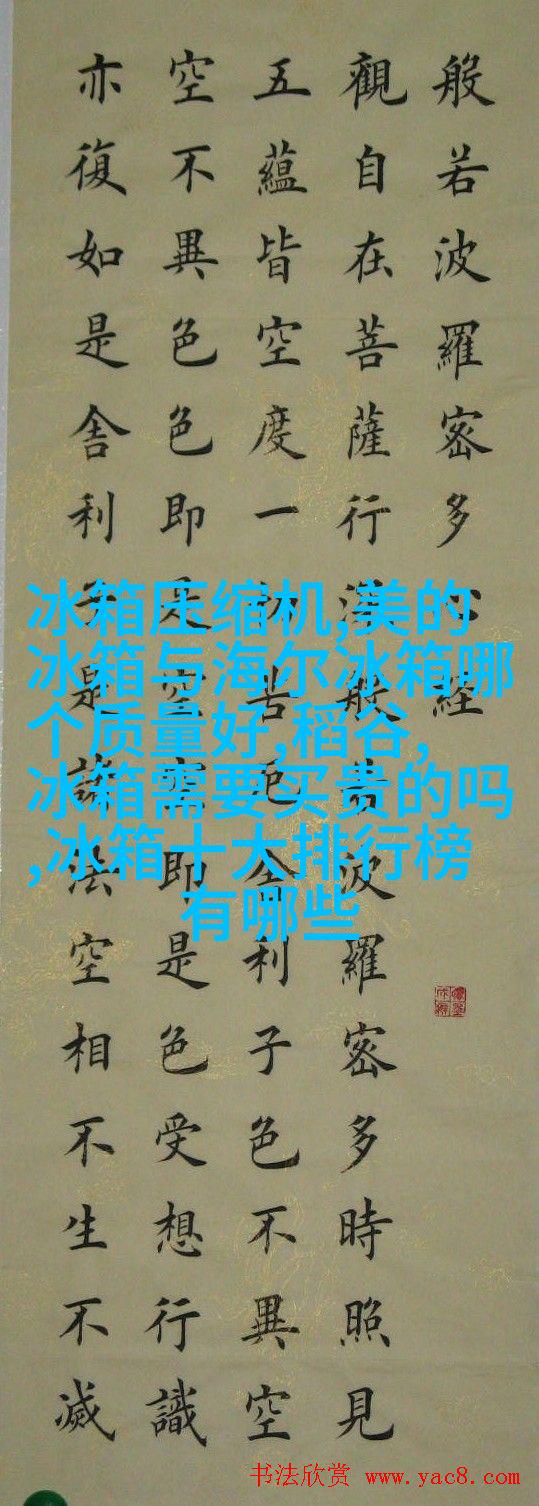 般若波羅密多心經
觀自在菩薩行深般若波羅密多時照見
五蘊皆空度一切苦厄舍利子色不異空
空不異色色即是空空即是色受想行識
亦復如是舍利子是諸法空相不生不滅
冰箱压缩机,美的
冰箱与海尔冰箱哪
个质量好,稻谷,
冰箱需要买贵的吗
,冰箱十大排行榜
有哪些
书法欣赏 www.yac8.com